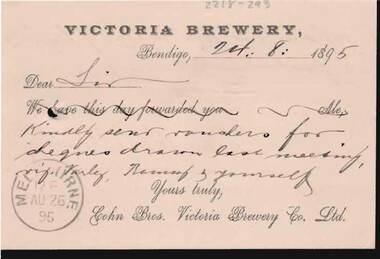 2218-293
VICTORIA BREWERY,
Bendigo, 24. 8. 1895
Dear Sir
We have this day forwarded you Ale,
Kindly send vouchers for
cheques drawn last meeting,
viz. & yourself
Yours truly,
Cohn Bros. Victoria Brewery Co. Ltd.
MELBOURNE
AU 26
95